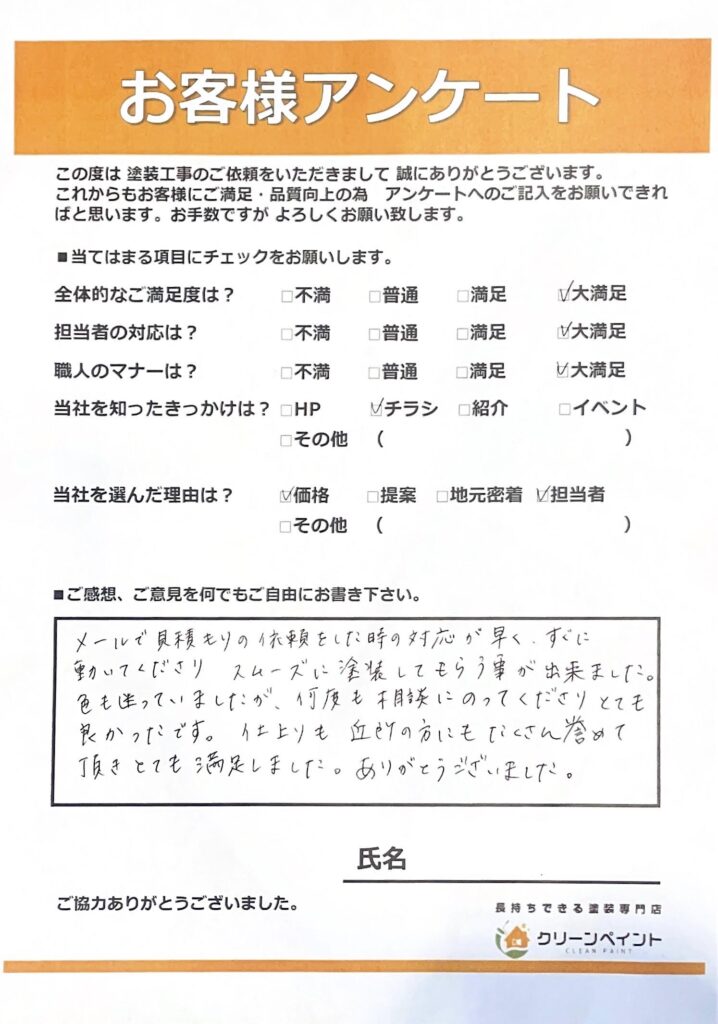 お客様アンケート
この度は 塗装工事のご依頼をいただきまして 誠にありがとうございます。
これからもお客様にご満足・品質向上の為　アンケートへのご記入をお願いできれ
ばと思います。お手数ですが よろしくお願い致します。
■当てはまる項目にチェックをお願いします。
全体的なご満足度は？ □不満 □普通 □満足 ☑大満足
担当者の対応は？ □不満 □普通 □満足 ☑大満足
職人のマナーは？ □不満 □普通 □満足 ☑大満足
当社を知ったきっかけは？ □HP ☑チラシ □紹介 □イベント
□その他 （ ）
当社を選んだ理由は？ ☑価格 □提案 □地元密着 ☑担当者
□その他 （ ）
■ご感想、ご意見を何でもご自由にお書き下さい。
メールで見積もりの依頼をした時の対応が早く、すぐに
動いてくださり スムーズに塗装してもらう事が出来ました。
色も迷っていましたが、何度も相談にのってくださりとても
良かったです。仕上りも 近所の方にもたくさん誉めて
頂きとても満足しました。ありがとうございました。
氏名
ご協力ありがとうございました。
長持ちできる塗装専門店
クリーンペイント
CLEAN PAINT